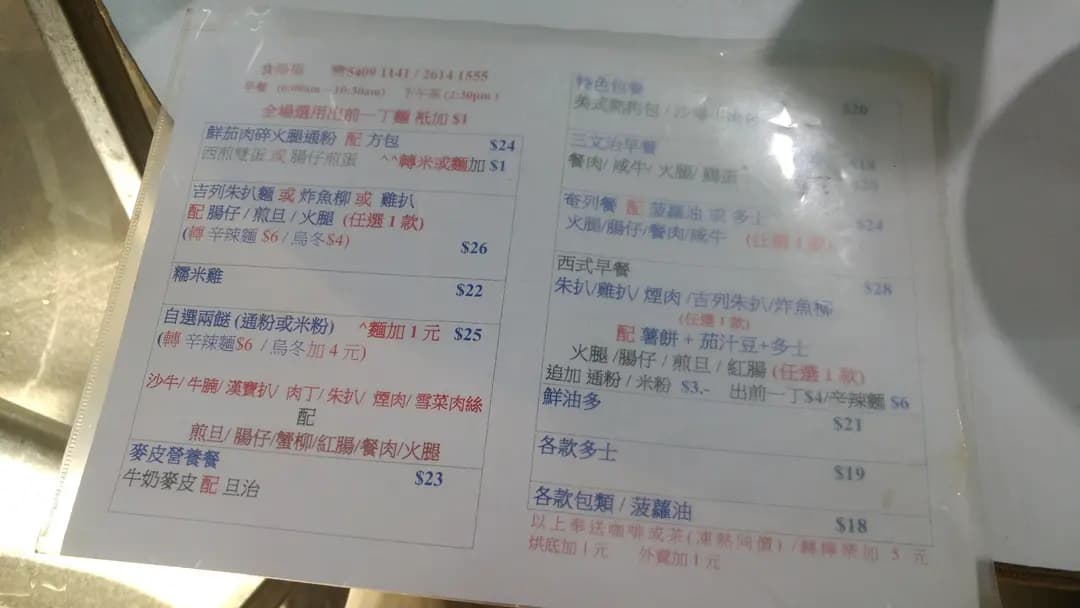 5409 1141 / 2614 1555
早餐 (6:00am - 10:30am) 下午茶 (2:30pm)
全場選用出前一丁麵 衹加 $1
鮮茄肉碎火腿通粉 配 方包 $24
西煎雙蛋 或 腸仔煎蛋 ^^轉米或麵加 $1
吉列朱扒麵 或 炸魚柳 或 雞扒
配 腸仔 / 煎旦 / 火腿 (任選 1 款)
(轉 辛辣麵 $6 / 烏冬$4) $26
糯米雞 $22
自選兩餸 (通粉或米粉) ^麵加 1 元 $25
(轉 辛辣麵$6 / 烏冬加 4 元)
沙牛/ 牛腩/ 漢寶扒/ 肉丁/ 朱扒/ 煙肉/ 雪菜肉絲
配
煎旦/ 腸仔/蟹柳/紅腸/餐肉/火腿
麥皮營養餐 $23
牛奶麥皮 配 旦治
特色包餐
美式熱狗包 / 沙嗲牛 $20
三文治早餐 $18
餐肉/ 咸牛/ 火腿/ 鷄蛋
奄列餐 配 菠蘿油 或 多士 $24
火腿/腸仔/餐肉/咸牛 (任選 1 款)
西式早餐 $28
朱扒/雞扒/ 煙肉 /吉列朱扒/炸魚柳
(任選 1 款)
配 薯餅 + 茄汁豆+多士
火腿 /腸仔 / 煎旦 / 紅腸 (任選 1 款)
追加 通粉 / 米粉 $3.- 出前一丁$4/辛辣麵 $6
鮮油多 $21
各款多士 $19
各款包類 / 菠蘿油 $18
以上奉送咖啡或茶(凍熱同價) /轉檸樂加 5 元
烘底加 1 元 外賣加 1 元